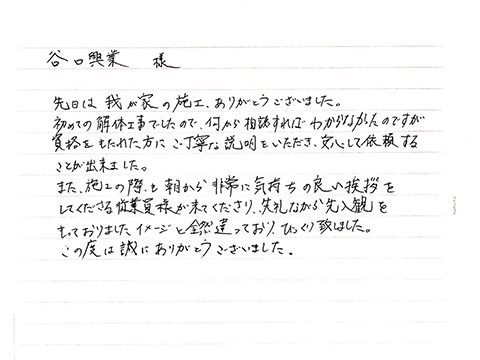 谷口興業 様
先日は 我が家の施工、ありがとうございました。
初めての解体工事でしたので、何から相談すれば わからなかったのですが
資格をもたれた方に ご丁寧な説明をいただき、安心して依頼する
ことが出来ました。
また、施工の際も朝から 非常に気持ちの良い挨拶を
してくださる従業員様が来てくださり、失礼ながら先入観を
もっておりましたイメージと全然違っており、びっくり致しました。
この度は誠にありがとうございました。